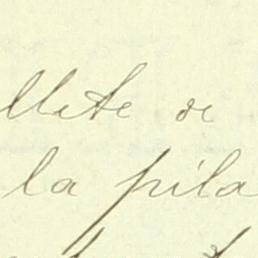 llete de
la pila